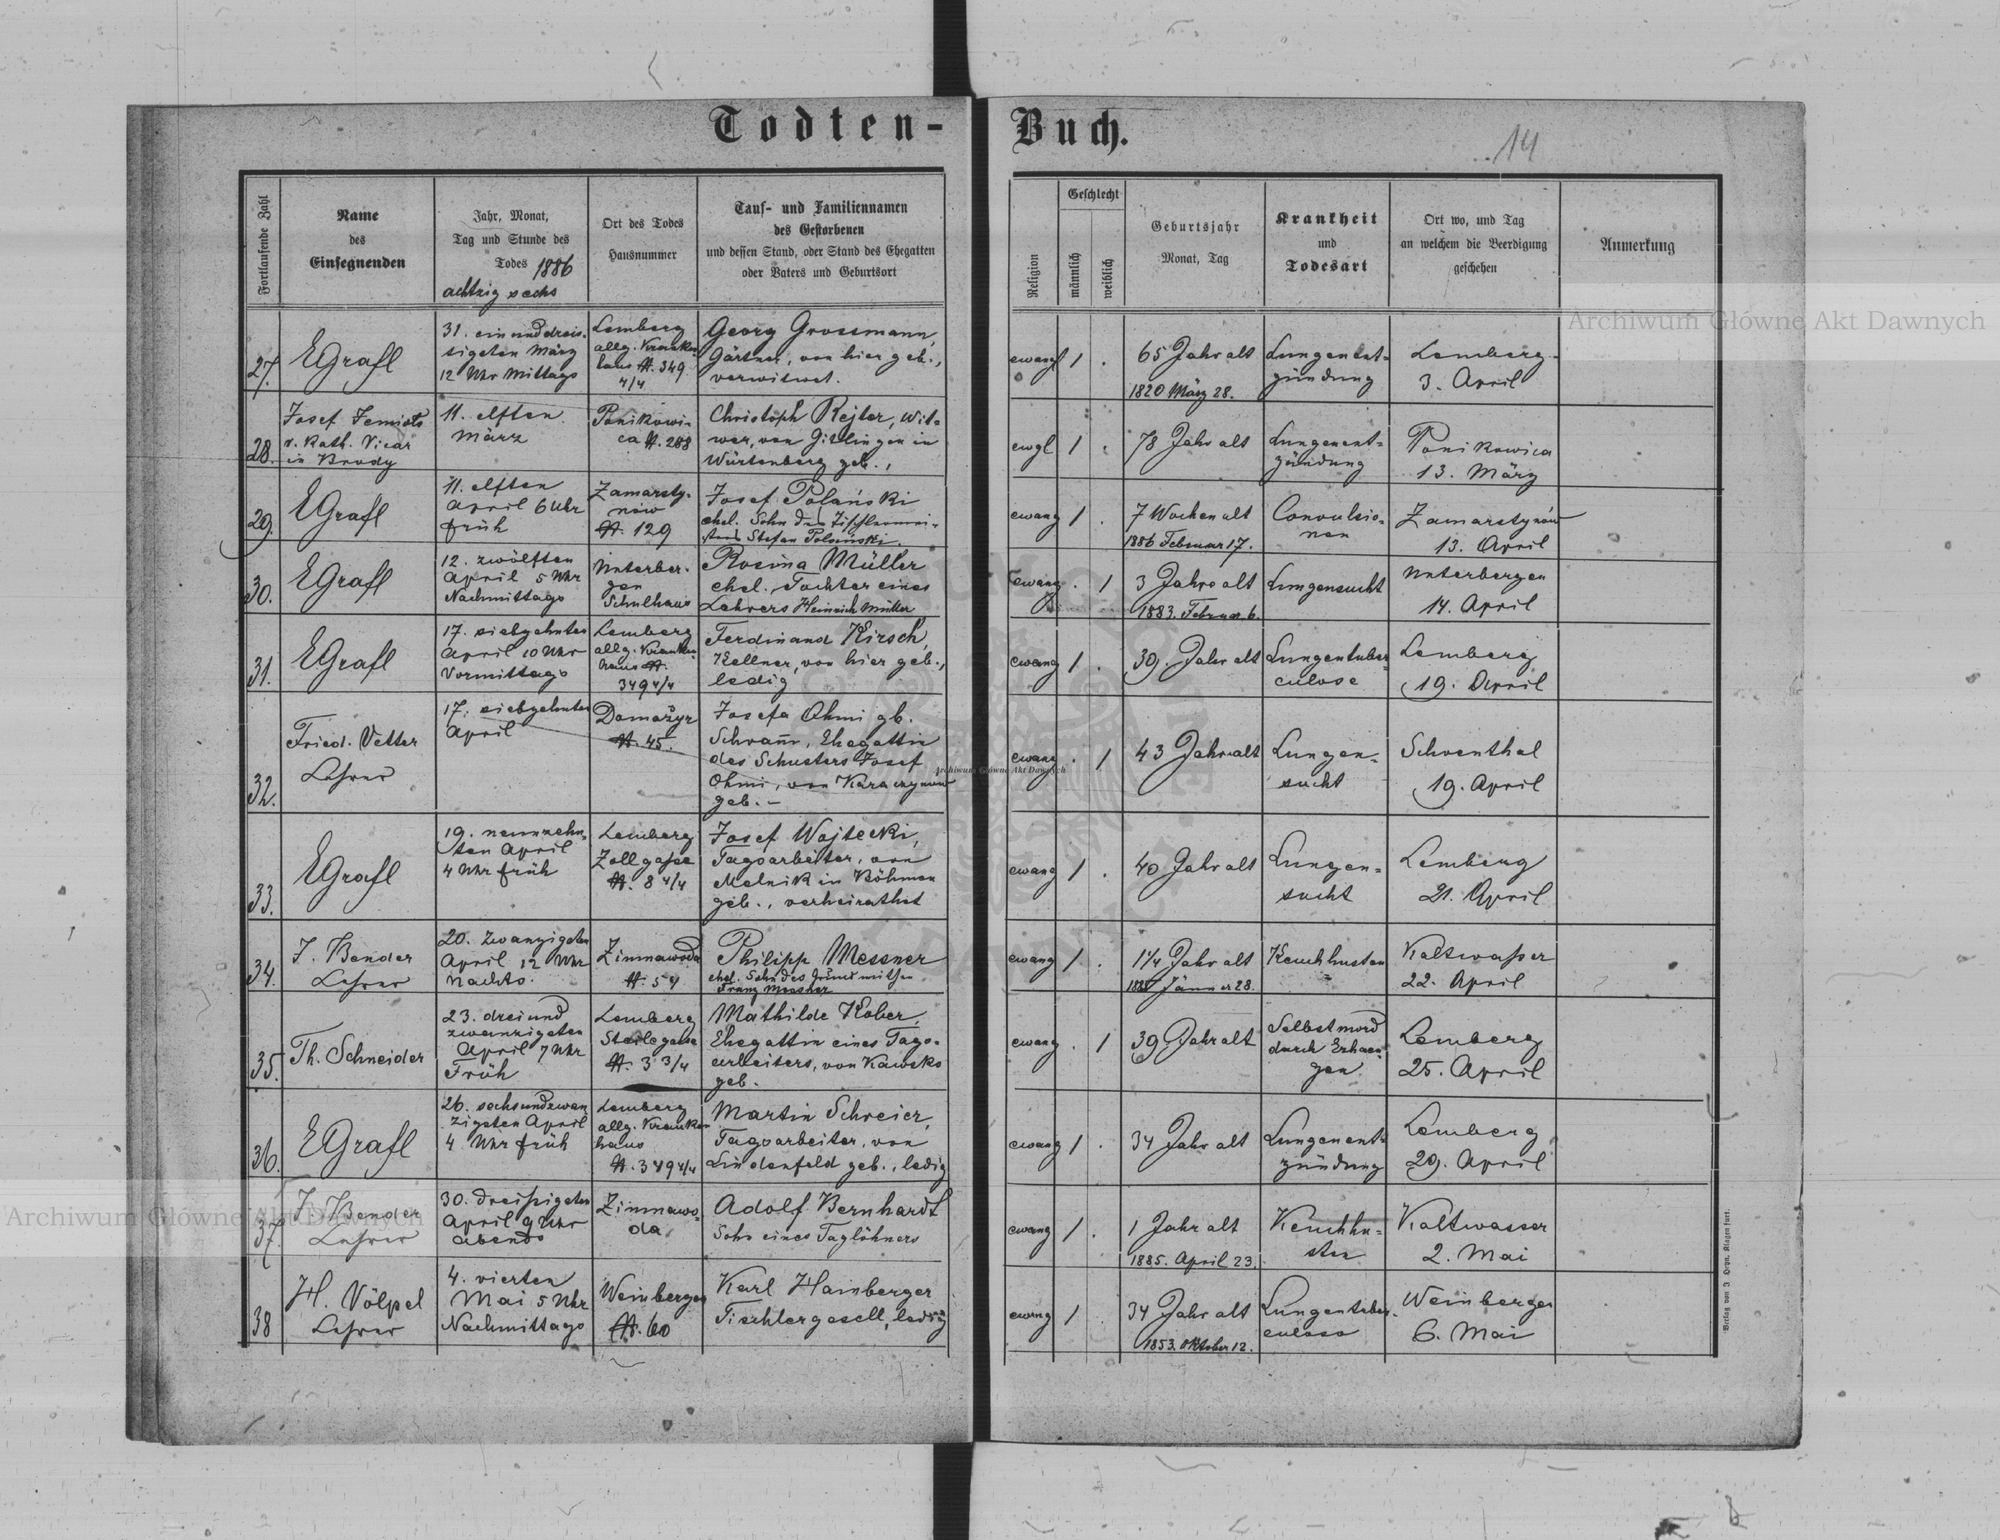 Todten-Buch.
14
Fortlaufende Zahl
Name
des
Einsegnenden
Jahr, Monat,
Tag und Stunde des
Todes 1886
achtzig sechs
Ort des Todes
Hausnummer
Tauf- und Familiennamen
des Gestorbenen
und dessen Stand, oder Stand des Ehegatten
oder Vaters und Geburtsort
Religion
Geschlecht
männlich
weiblich
Geburtsjahr
Monat, Tag
Krankheit
und
Todesart
Ort wo, und Tag
an welchem die Beerdigung
geschehen
Anmerkung
27.
EGrafl
31. einunddreis-
sigsten März
12 Uhr Mittags
Lemberg
allg. Kranken
haus N. 349
4/4
Georg Grossmann,
Gärtner, von hier geb.,
verwitwet.
evangl
1
.
65 Jahr alt
1820 März 28.
Lungenent-
zündung
Lemberg
3. April
28.
Josef
r. Kath. Vicar
in Brody
11. elften
März
Ponikowi-
ca N. 288
Christoph Rejter, Wit-
wer, von Gislingen in
Würtenberg geb.,
evgl
1
.
78 Jahr alt
Lungenent-
zündung
Ponikowica
13. März
29.
EGrafl
11. elften
April 6 Uhr
früh
Zamarsty-
nów
N. 129
Josef Polański
ehel. Sohn des Tischlermei-
sters Stefan Polański.
evang
1
.
7 Wochen alt
1886 Februar 17.
Convulsio-
nen
Zamarstynów
13. April
30.
EGrafl
12. zwölften
April 5 Uhr
Nachmittags
Unterber-
gen
Schulhaus
Rosina Müller
ehel. Tochter eines
Lehrers Heinrich Müller
evang
.
1
3 Jahre alt
1883. Februar 6.
Lungensucht
Unterbergen
14. April
31.
EGrafl
17. siebzehnten
April 10 Uhr
Vormittags
Lemberg
allg. Kranken
haus N.
349 4/4
Ferdinand Kirsch,
Kellner, von hier geb.,
ledig
evang
1
.
39. Jahr alt
Lungentuber-
culose
Lemberg
19. April
32.
Fried. Vetter
Lehrer
17. siebzehnten
April
Domażyr
N. 45.
Josefa Ohmi gb.
Schram̄, Ehegattin
des Schusters Josef
Ohmi, von Karaczynow
geb. -
evang
.
1
43 Jahr alt
Lungen-
sucht
Schoenthal
19. April
33.
EGrafl
19. neunzehn-
ten April
4 Uhr früh
Lemberg
Zollgasse
N. 8 4/4
Josef Wojtecki,
Tagsarbeiter, von
Melnik in Böhmen
geb., verheirathet
evang
1
.
40 Jahr alt
Lungen-
sucht
Lemberg
21. April
34.
J. Bender
Lehrer
20. zwanzigsten
April 12 Uhr
Nachts.
Zimnawoda
N. 54
Philipp Messner
ehel. Sohn des
Franz Messner
evang
1
.
1 1/4 Jahr alt
Jänner 28.
Keuchhusten
Kaltwasser
22. April
35.
Th. Schneider
23. dreiund
zwanzigsten
April 7 Uhr
Früh
Lemberg
N. 3 3/4
Mathilde Kober,
Ehegattin eines Tags-
arbeiters, von Kawsko
geb.
evang
.
1
39 Jahr alt
Selbstmord
durch Erhaen-
gen
Lemberg
25. April
36.
EGrafl
26. sechsundzwan
zigsten April
4 Uhr früh
Lemberg
allg. Kranken
haus
N. 349 4/4
Martin Schreier,
Tagsarbeiter, von
Lindenfeld geb., ledig
evang
1
.
34 Jahr alt
Lungenent-
zündung
Lemberg
29. April
37.
J. Bender
Lehrer
30. dreißigsten
April 9 Uhr
abends
Zimnawo-
da
Adolf Bernhardt
Sohn eines Taglöhners
evang
1
.
1 Jahr alt
1885. April 23.
Keuchhu-
sten
Kaltwasser
2. Mai
38
H. Völpel
Lehrer
4. vierten
Mai 5 Uhr
Nachmittags
Weinbergen
N. 60
Karl Hamberger
Tischlergesell, ledig
evang
1
34 Jahr alt
1853. Oktober 12.
Lungentuber-
culose
Weinbergen
6. Mai
Archiwum Główne Akt Dawnych
Archiwum Główne Akt Dawnych
Archiwum Główne Akt Dawnych